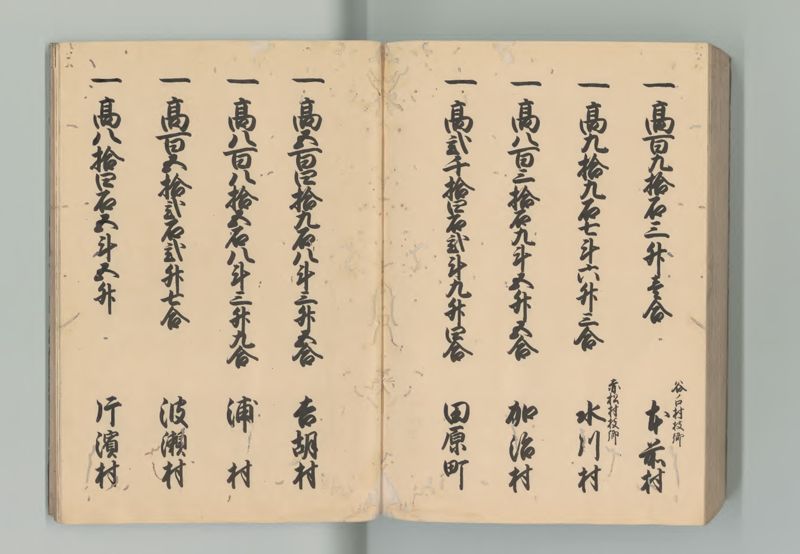 一高百九拾石三升壱合
谷ノ口村枝郷
本前村
一高九拾九石七斗六升三合
赤松村枝郷
水川村
一高八百三拾石九斗五升五合
加治村
一高弐千拾四石弐斗九升四合
田原町
一高五百四拾九石八斗三升五合
吉胡村
一高八百八拾五石八斗三升九合
浦村
一高百五拾弐石弐升七合
波瀬村
一高八拾四石五斗五升
片濱村